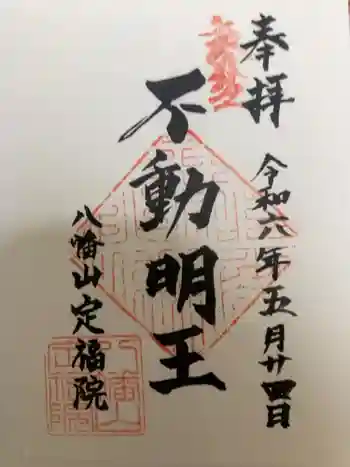 奉拝
令和六年五月廿四日
不動明王
八幡山定福院